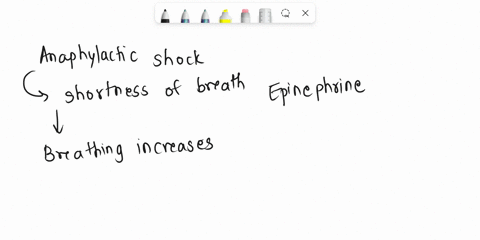 Anaphylactic shock
shortness of breath Epinephrine
Breathing increases